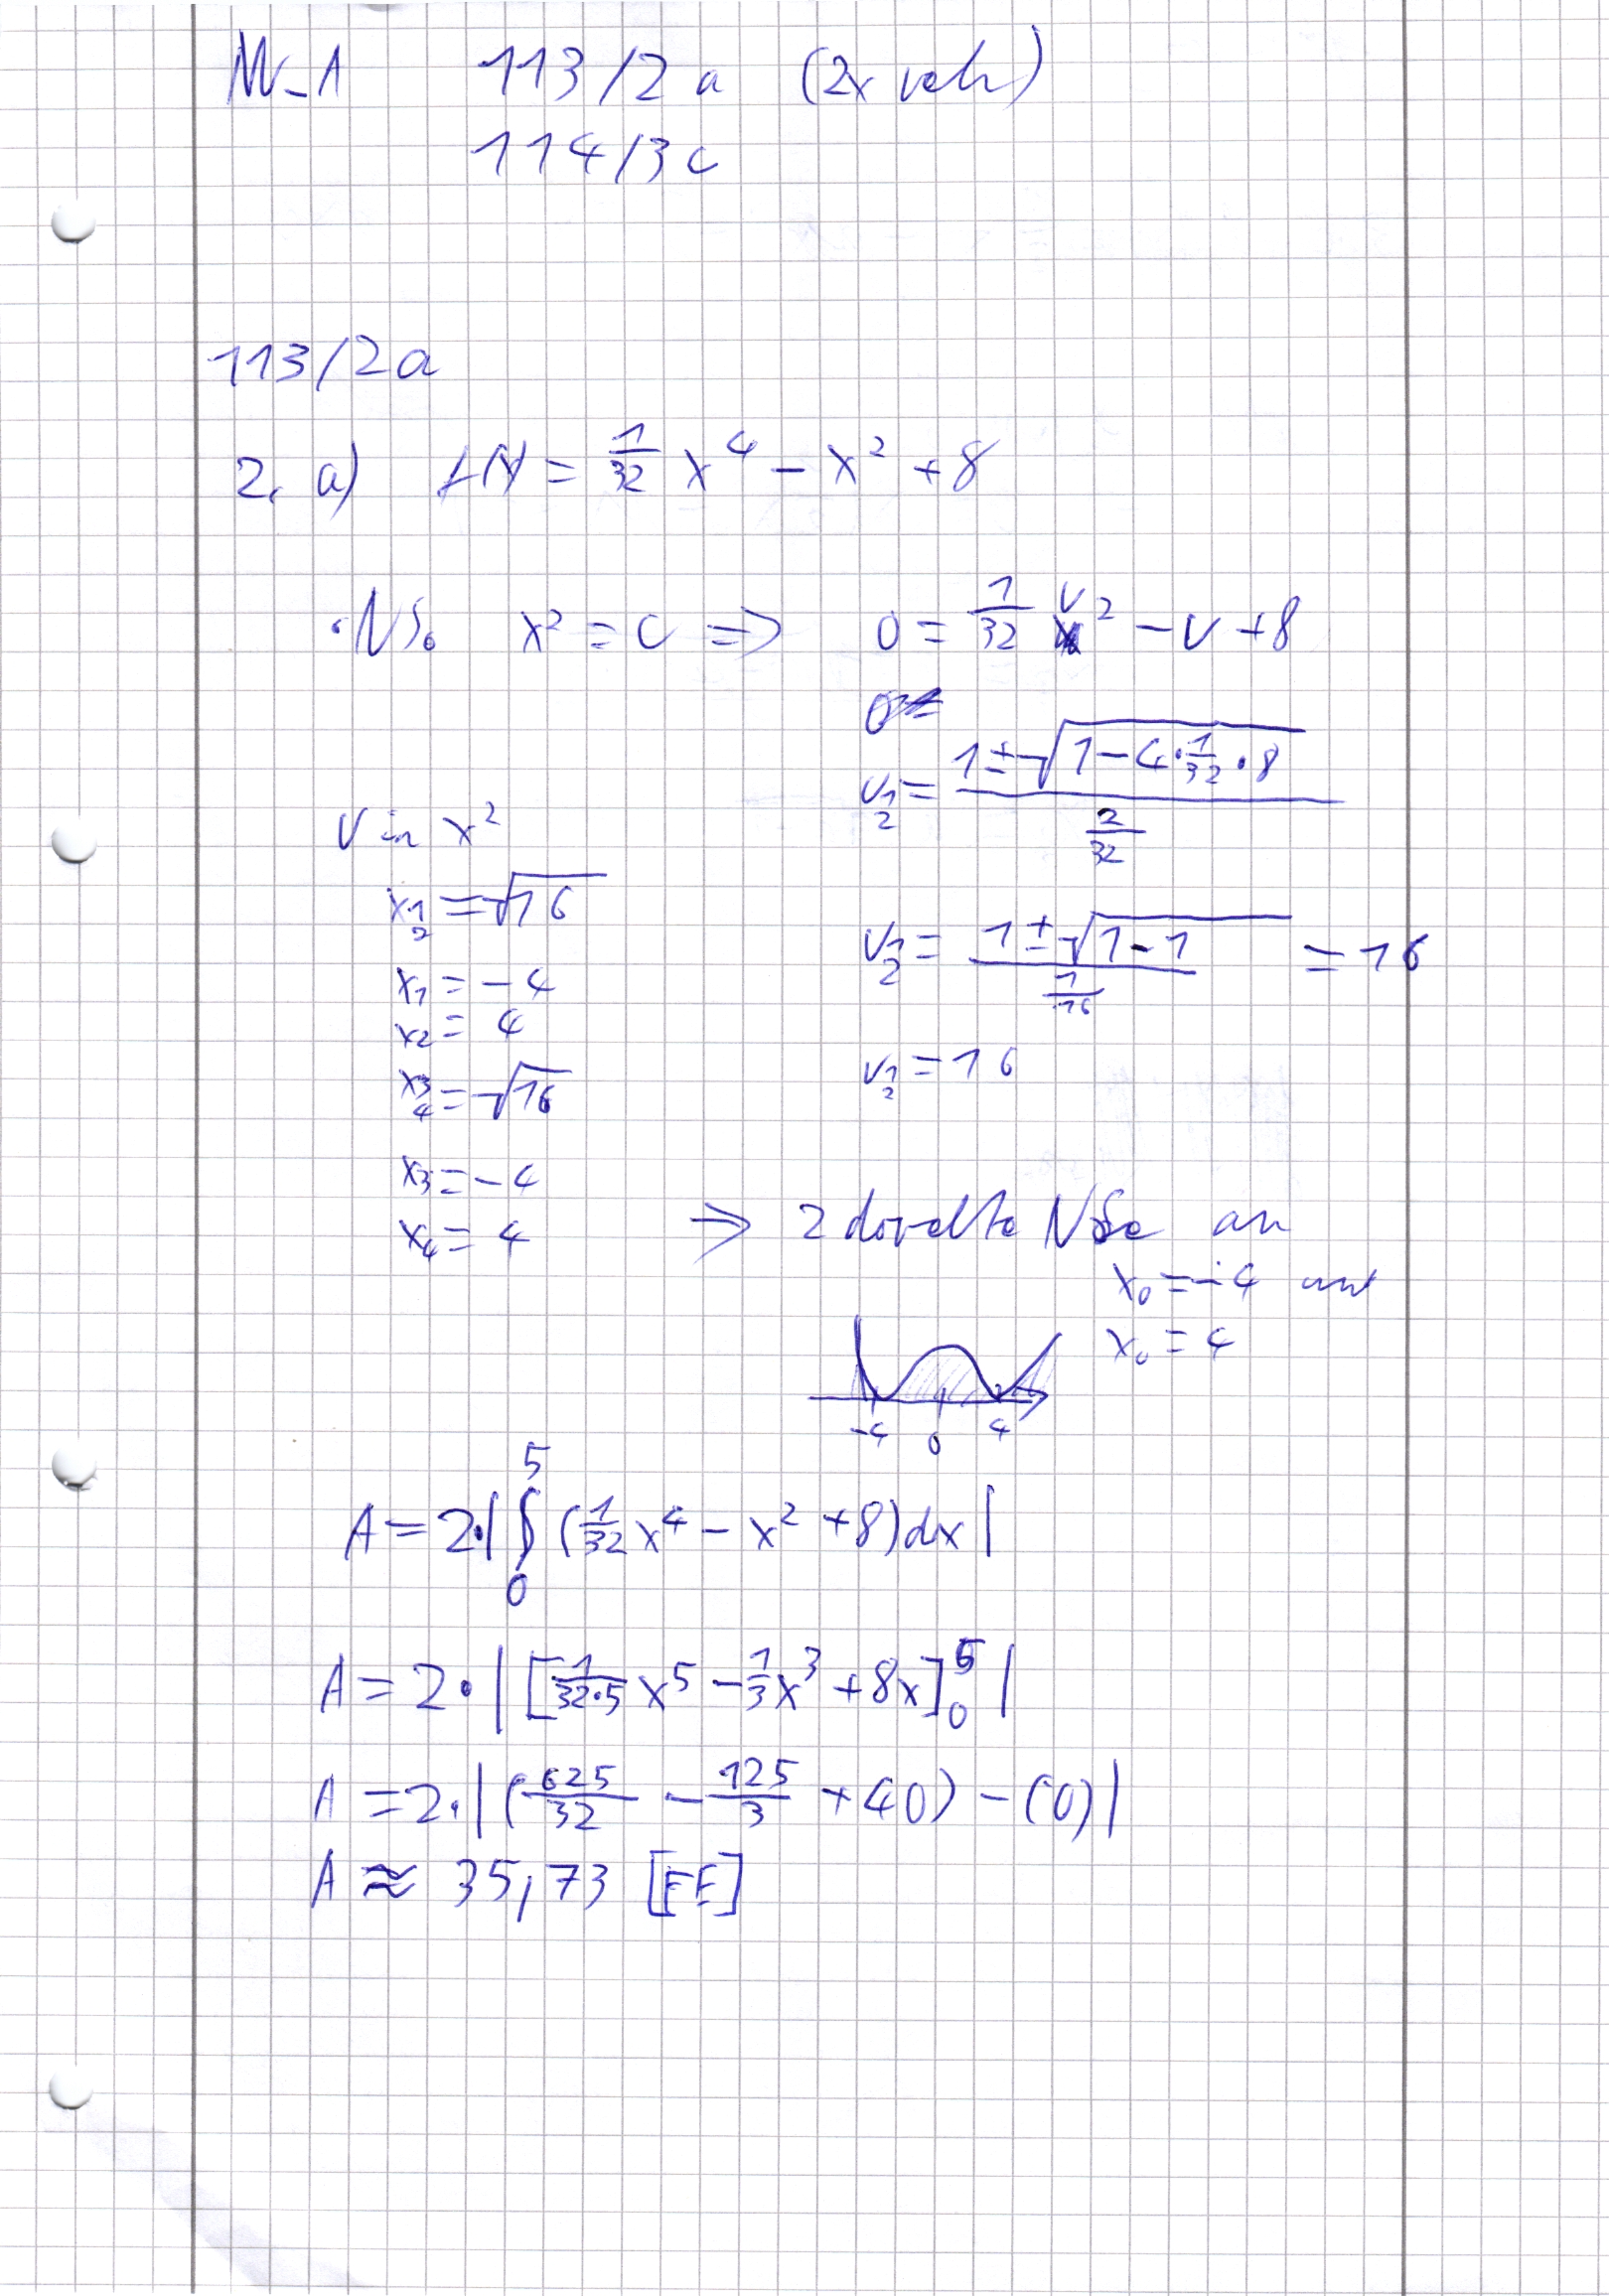 M-A 113/2 a (2x
114/3c
113/2a
2. a) f(x) = 1/32 x⁴ - x² + 8
• NS. x² = U => 0 = 1/32 U² - U + 8
U₁/₂ = (1 ± √(1 - 4 · 1/32 · 8)) / (2/32)
U in x²
x₁/₂ = √16
U₁/₂ = (1 ± √(1 - 1)) / (1/16) = 16
x₁ = - 4
x₂ = 4
U₁/₂ = 16
x₃/₄ = √16
x₃ = - 4
x₄ = 4
=> 2 an
x₀ = -4 und
x₀ = 4
-4 0 4
A = 2·|∫₀⁵ (1/32 x⁴ - x² + 8) dx|
A = 2 · |[1/(32·5) x⁵ - 1/3 x³ + 8x]₀⁵|
A = 2 · |(625/32 - 125/3 + 40) - (0)|
A ≈ 35,73 [FE]